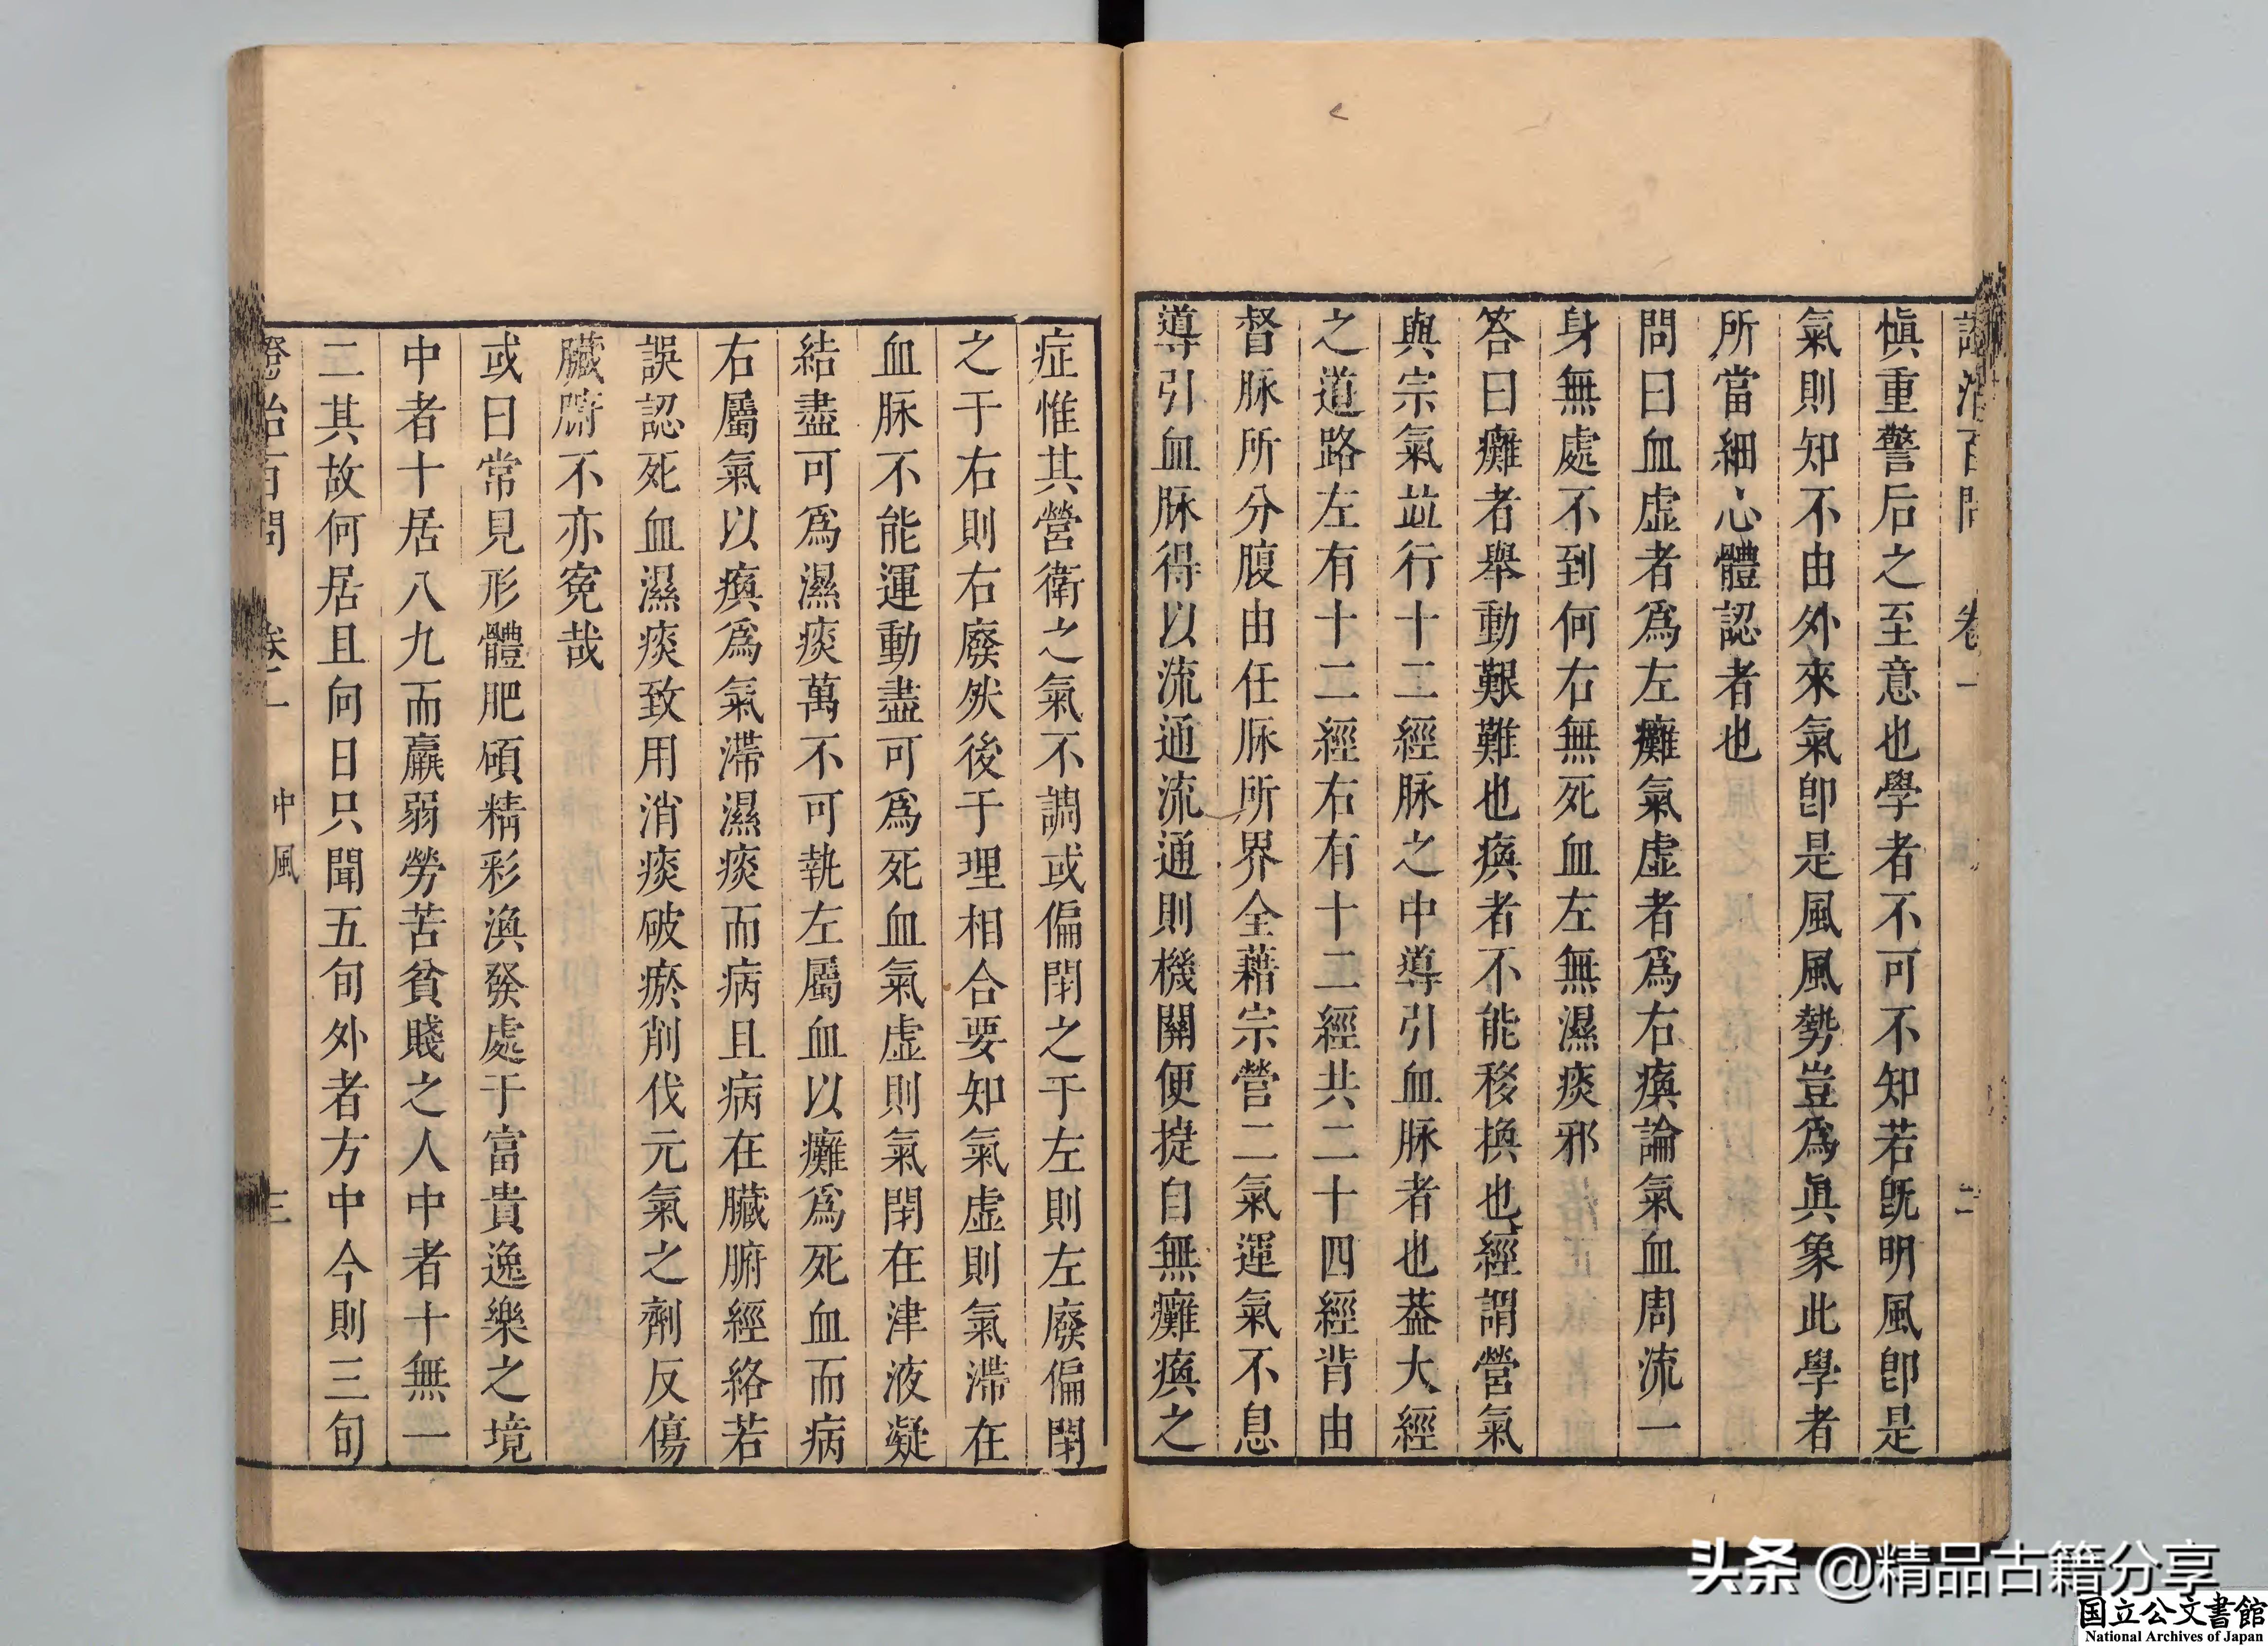 證治百問 卷一 二
慎重警后之至意也學者不可不知若既明風卽是
氣則知不由外來氣卽是風風勢豈爲眞象此學者
所當細心體認者也
問曰血虛者爲左癱氣虛者爲右瘓論氣血周流一
身無處不到何右無死血左無濕痰邪
答曰癱者舉動艱難也瘓者不能移換也經謂營氣
與宗氣並行十二經脉之中導引血脉者也葢大經
之道路左有十二經右有十二經共二十四經背由
督脉所分腹由任脉所界全藉宗營二氣運氣不息
導引血脉得以流通流通則機關便捷自無癱瘓之
症惟其營衛之氣不調或偏閉之于左則左廢偏閉
之于右則右廢然後于理相合要知氣虛則氣滯在
血脉不能運動盡可爲死血氣虛則氣閉在津液凝
結盡可爲濕痰萬不可執左屬血以癱爲死血而病
右屬氣以瘓爲氣滯濕痰而病且病在臟腑經絡若
誤認死血濕痰致用消痰破瘀削伐元氣之劑反傷
臟腑不亦寃哉
或曰常見形體肥碩精彩渙發處于富貴逸樂之境
中者十居八九而羸弱勞苦貧賤之人中者十無一
二其故何居且向日只聞五旬外者方中今則三旬
證治百問 卷一 中風 三
头条 @精品古籍分享
国立公文書館
National Archives of Japan